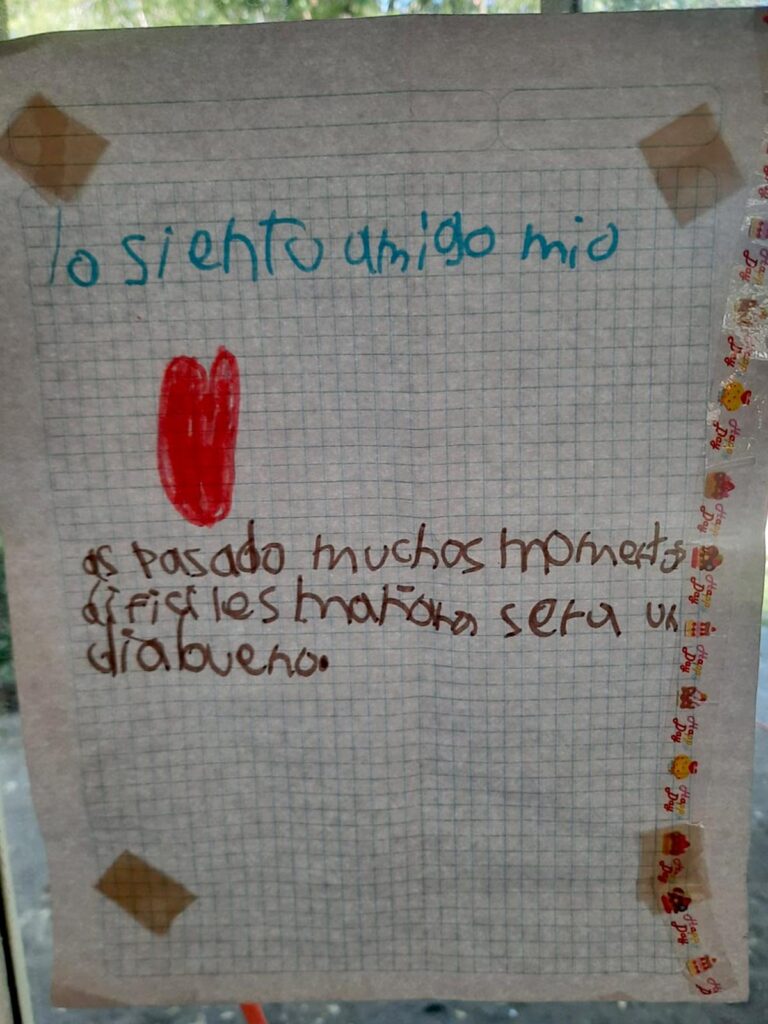 lo siento amigo mio
as pasado muchos momentos
dificiles mañana sera un
dia bueno.
Happy
Day
Happy
Day
Happy
Day
Happy
Day
Happy
Day
Happy
Day
Happy
Day
Happy
Day
Happy
Day